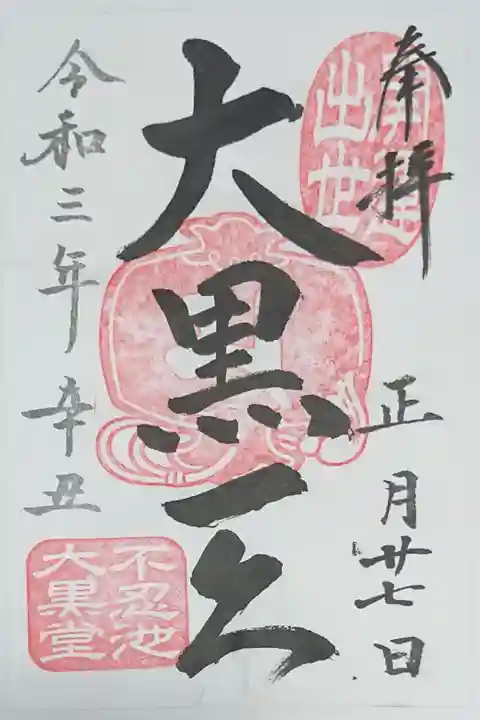 奉拝
正月廿七日
開運
出世
大黒天
令和三年辛丑
不忍池
大黒堂